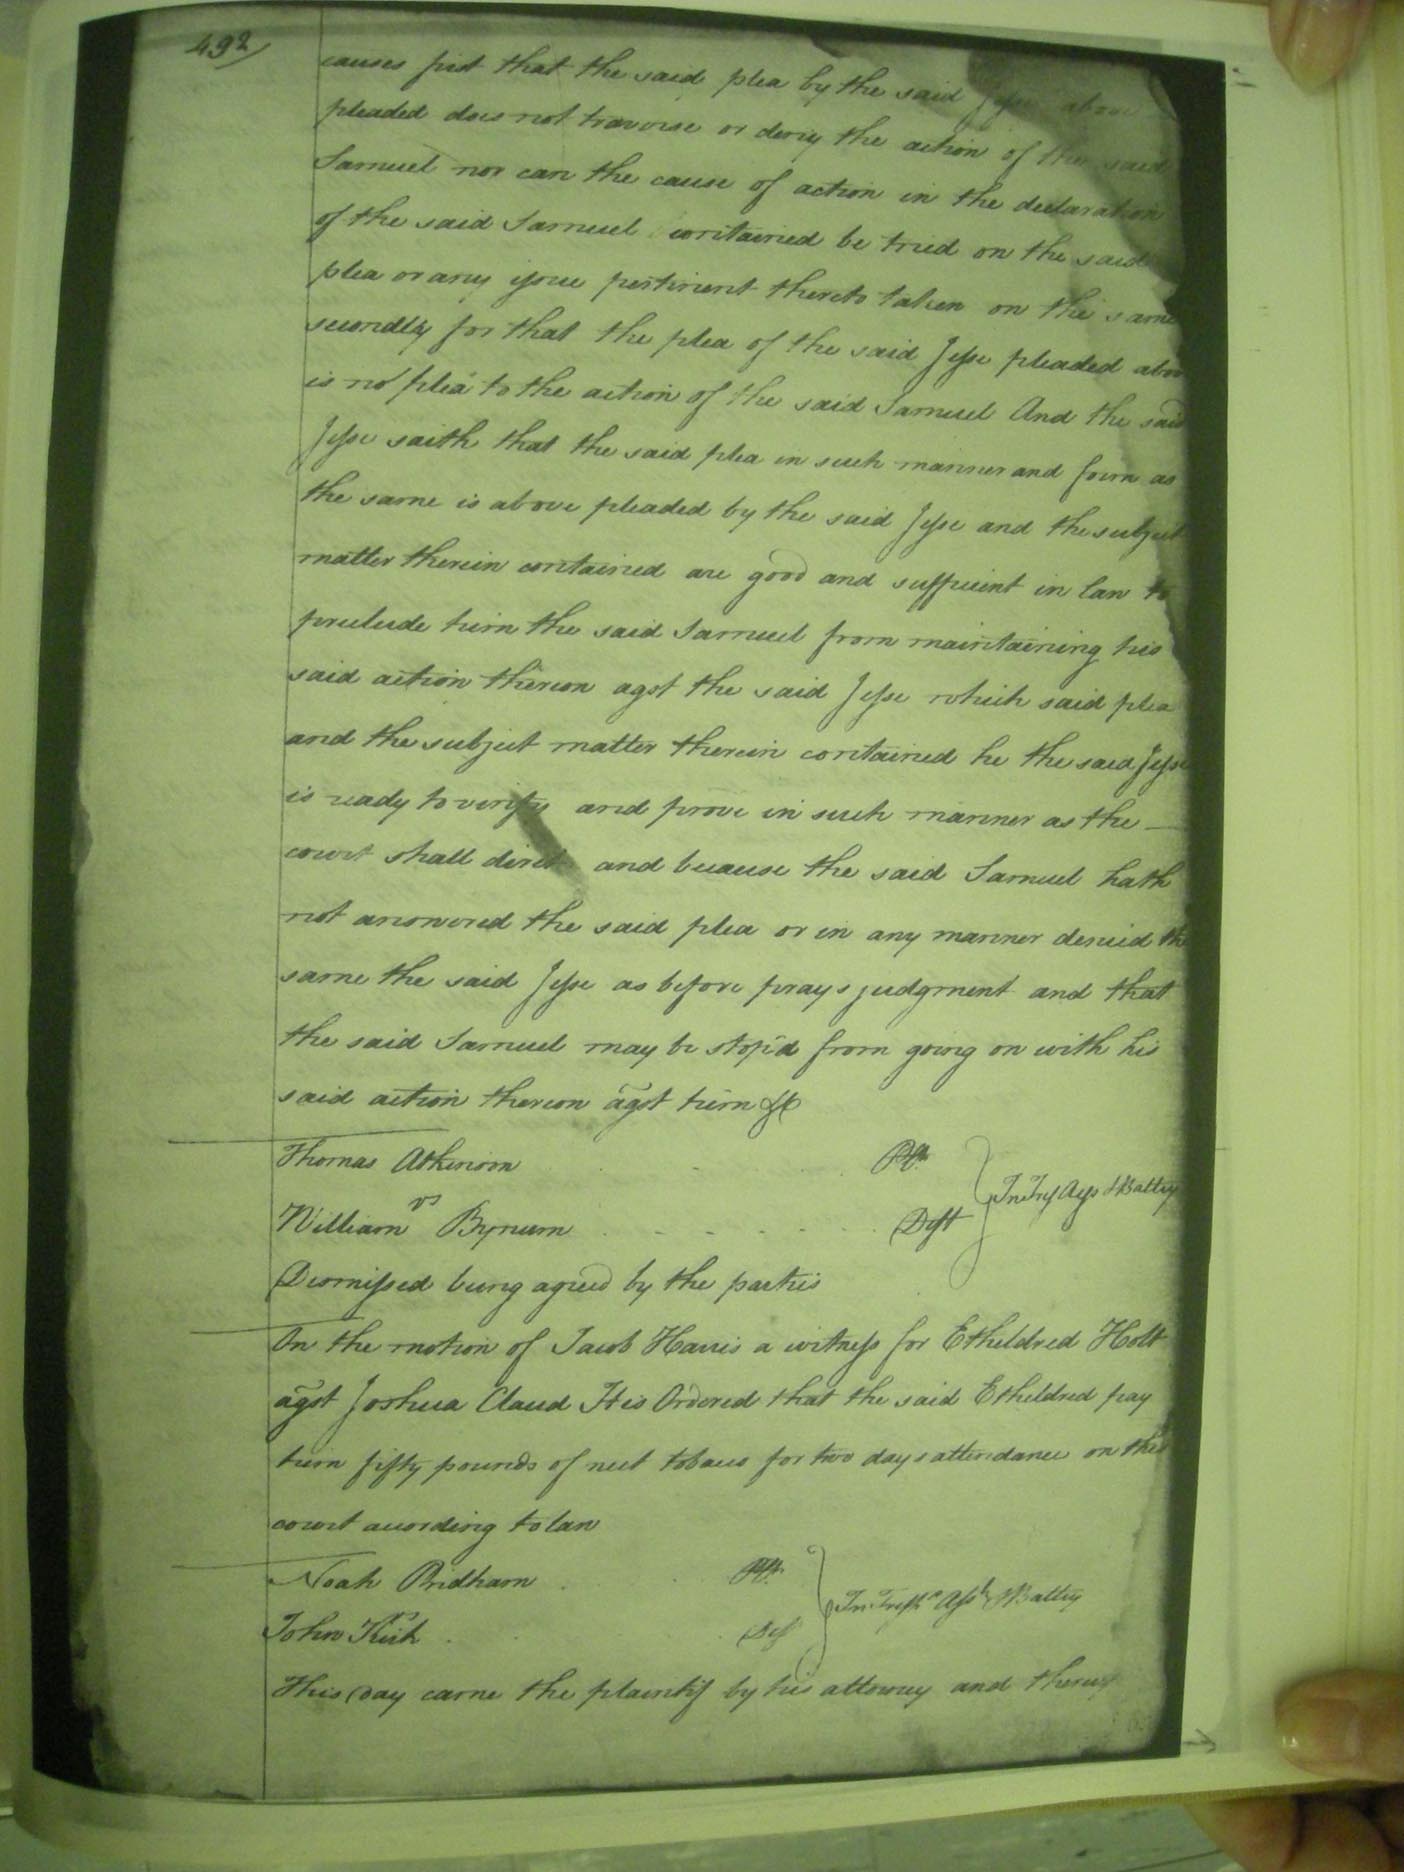 492
causes first that the said plea by the said Jesse above
pleaded does not traverse or deny the action of the said
Samuel nor can the cause of action in the declaration
of the said Samuel contained be tried on the said
plea or any issue pertinent thereto taken on the same
secondly for that the plea of the said Jesse pleaded abov
is no plea to the action of the said Samuel And the said
Jesse saith that the said plea in such manner and form as
the same is above pleaded by the said Jesse and the subject
matter therein contained are good and sufficient in law to
preclude him the said Samuel from maintaining his
said action thereon agst the said Jesse which said plea
and the subject matter therein contained he the said Jesse
is ready to verify and prove in such manner as the
court shall direct and because the said Samuel hath
not answered the said plea or in any manner denied the
same the said Jesse as before prays judgment and that
the said Samuel may be stop'd from going on with his
said action thereon agst him &c
Thomas Atkinson Plt
vs In Tres Ass & Battry
William Bynum Deft
Dismissed being agreed by the parties
On the motion of Jacob Harris a witness for Etheldred Holt
agst Joshua Claud It is Ordered that the said Etheldred pay
him fifty pounds of neet tobacco for two days attendance on this
court according to law
Noah Pridham Plt
vs In Tresps Asst & Battry
John Kirk Def
This day came the plaintif by his attorney and